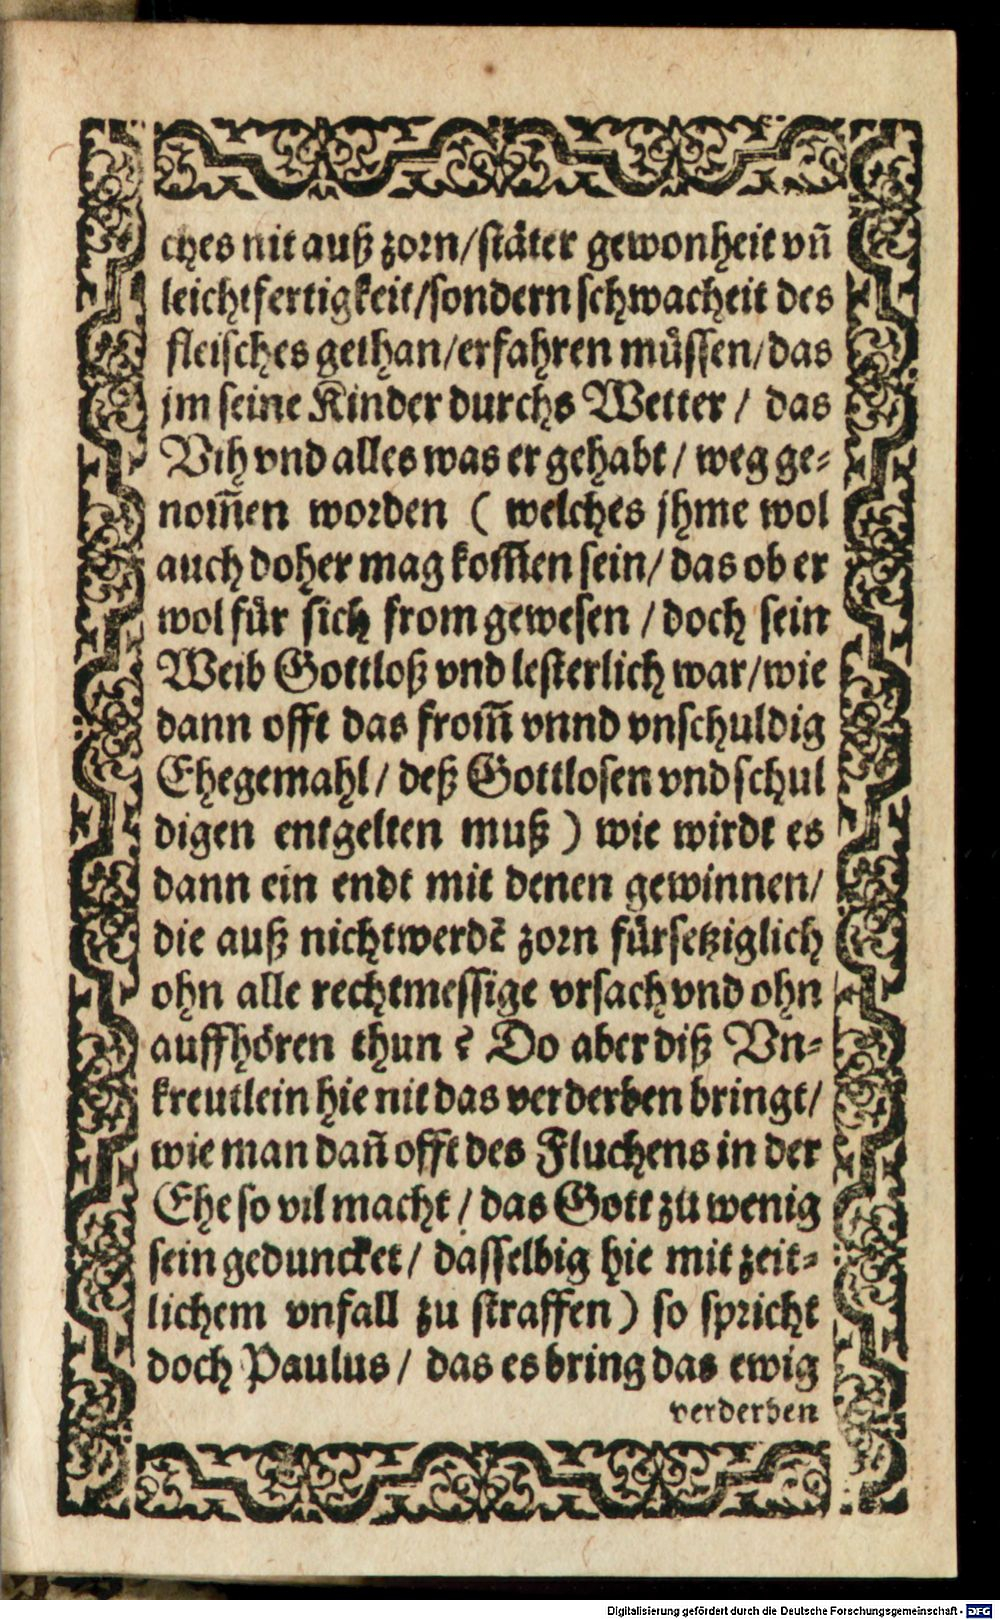 ches nit auß zorn/stäter gewonheit vñ
leichtfertigkeit/sondern schwacheit des
fleisches gethan/erfahren müssen/das
jm seine Kinder durchs Wetter / das
Vih vnd alles was er gehabt / weg ge-
nom̃en worden ( welches jhme wol
auch doher mag kom̃en sein/ das ob er
wol für sich from gewesen / doch sein
Weib Gottloß vnd lesterlich war/wie
dann offt das from̃ vnnd vnschuldig
Ehegemahl/ deß Gottlosen vnd schul
digen entgelten muß ) wie wirdt es
dann ein endt mit denen gewinnen/
die auß nichtwerdẽ zorn fürsetziglich
ohn alle rechtmessige vrsach vnd ohn
auffhören thun ? Do aber diß Vn-
kreutlein hie nit das verderben bringt/
wie man dañ offt des Fluchens in der
Ehe so vil macht / das Gott zu wenig
sein geduncket / dasselbig hie mit zeit-
lichem vnfall zu straffen ) so spricht
doch Paulus / das es bring das ewig
verderben
Digitalisierung gefördert durch die Deutsche Forschungsgemeinschaft - DFG